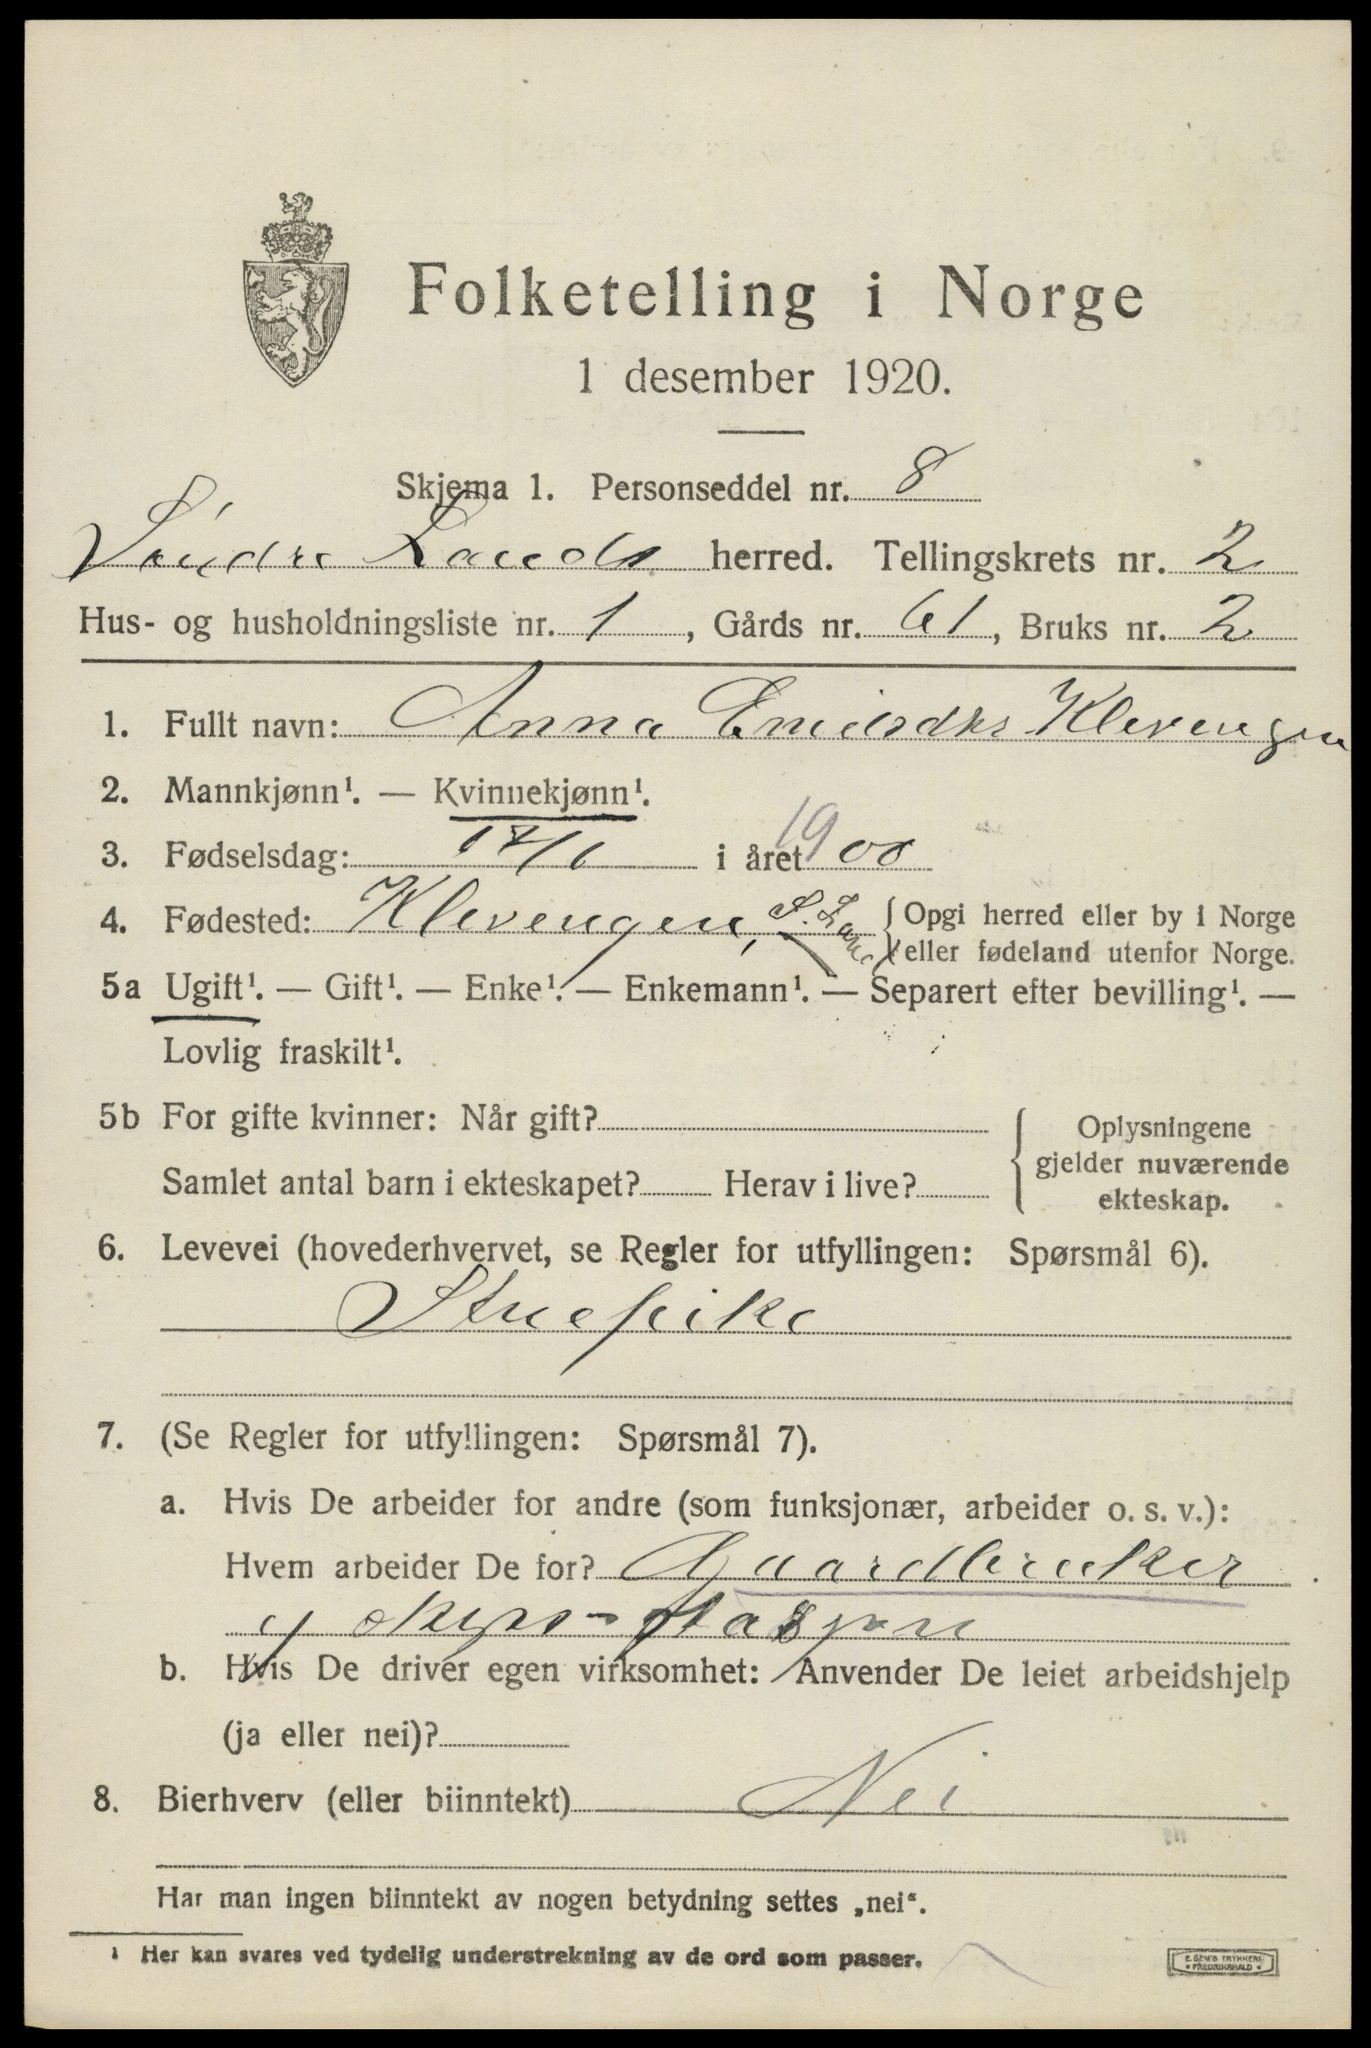 Folketelling i Norge
1 desember 1920.
Skjema 1. Personseddel nr. 8
Søndre Lands herred. Tellingskrets nr. 2
Hus- og husholdningsliste nr. 1, Gårds nr. 61, Bruks nr. 2
1. Fullt navn: Anna Klevengen
2. Mannkjønn¹. — Kvinnekjønn¹.
3. Fødselsdag: 17/1 i året 1900
4. Fødested: Klevengen, S. Land { Opgi herred eller by i Norge
eller fødeland utenfor Norge.
5a Ugift¹. — Gift¹. — Enke¹. — Enkemann¹. — Separert efter bevilling¹. —
Lovlig fraskilt¹.
5b For gifte kvinner: Når gift?
Samlet antal barn i ekteskapet? Herav i live?
{ Oplysningene
gjelder nuværende
ekteskap.
6. Levevei (hovederhvervet, se Regler for utfyllingen: Spørsmål 6).
Stuepike
7. (Se Regler for utfyllingen: Spørsmål 7).
a. Hvis De arbeider for andre (som funksjonær, arbeider o. s. v.):
Hvem arbeider De for? Gaardbruker
b. Hvis De driver egen virksomhet: Anvender De leiet arbeidshjelp
(ja eller nei)?
8. Bierhverv (eller biinntekt) Nei
Har man ingen biinntekt av nogen betydning settes „nei“.
¹ Her kan svares ved tydelig understrekning av de ord som passer.
E. SEM'S TRYKKERI
• FREDRIKSHALD •